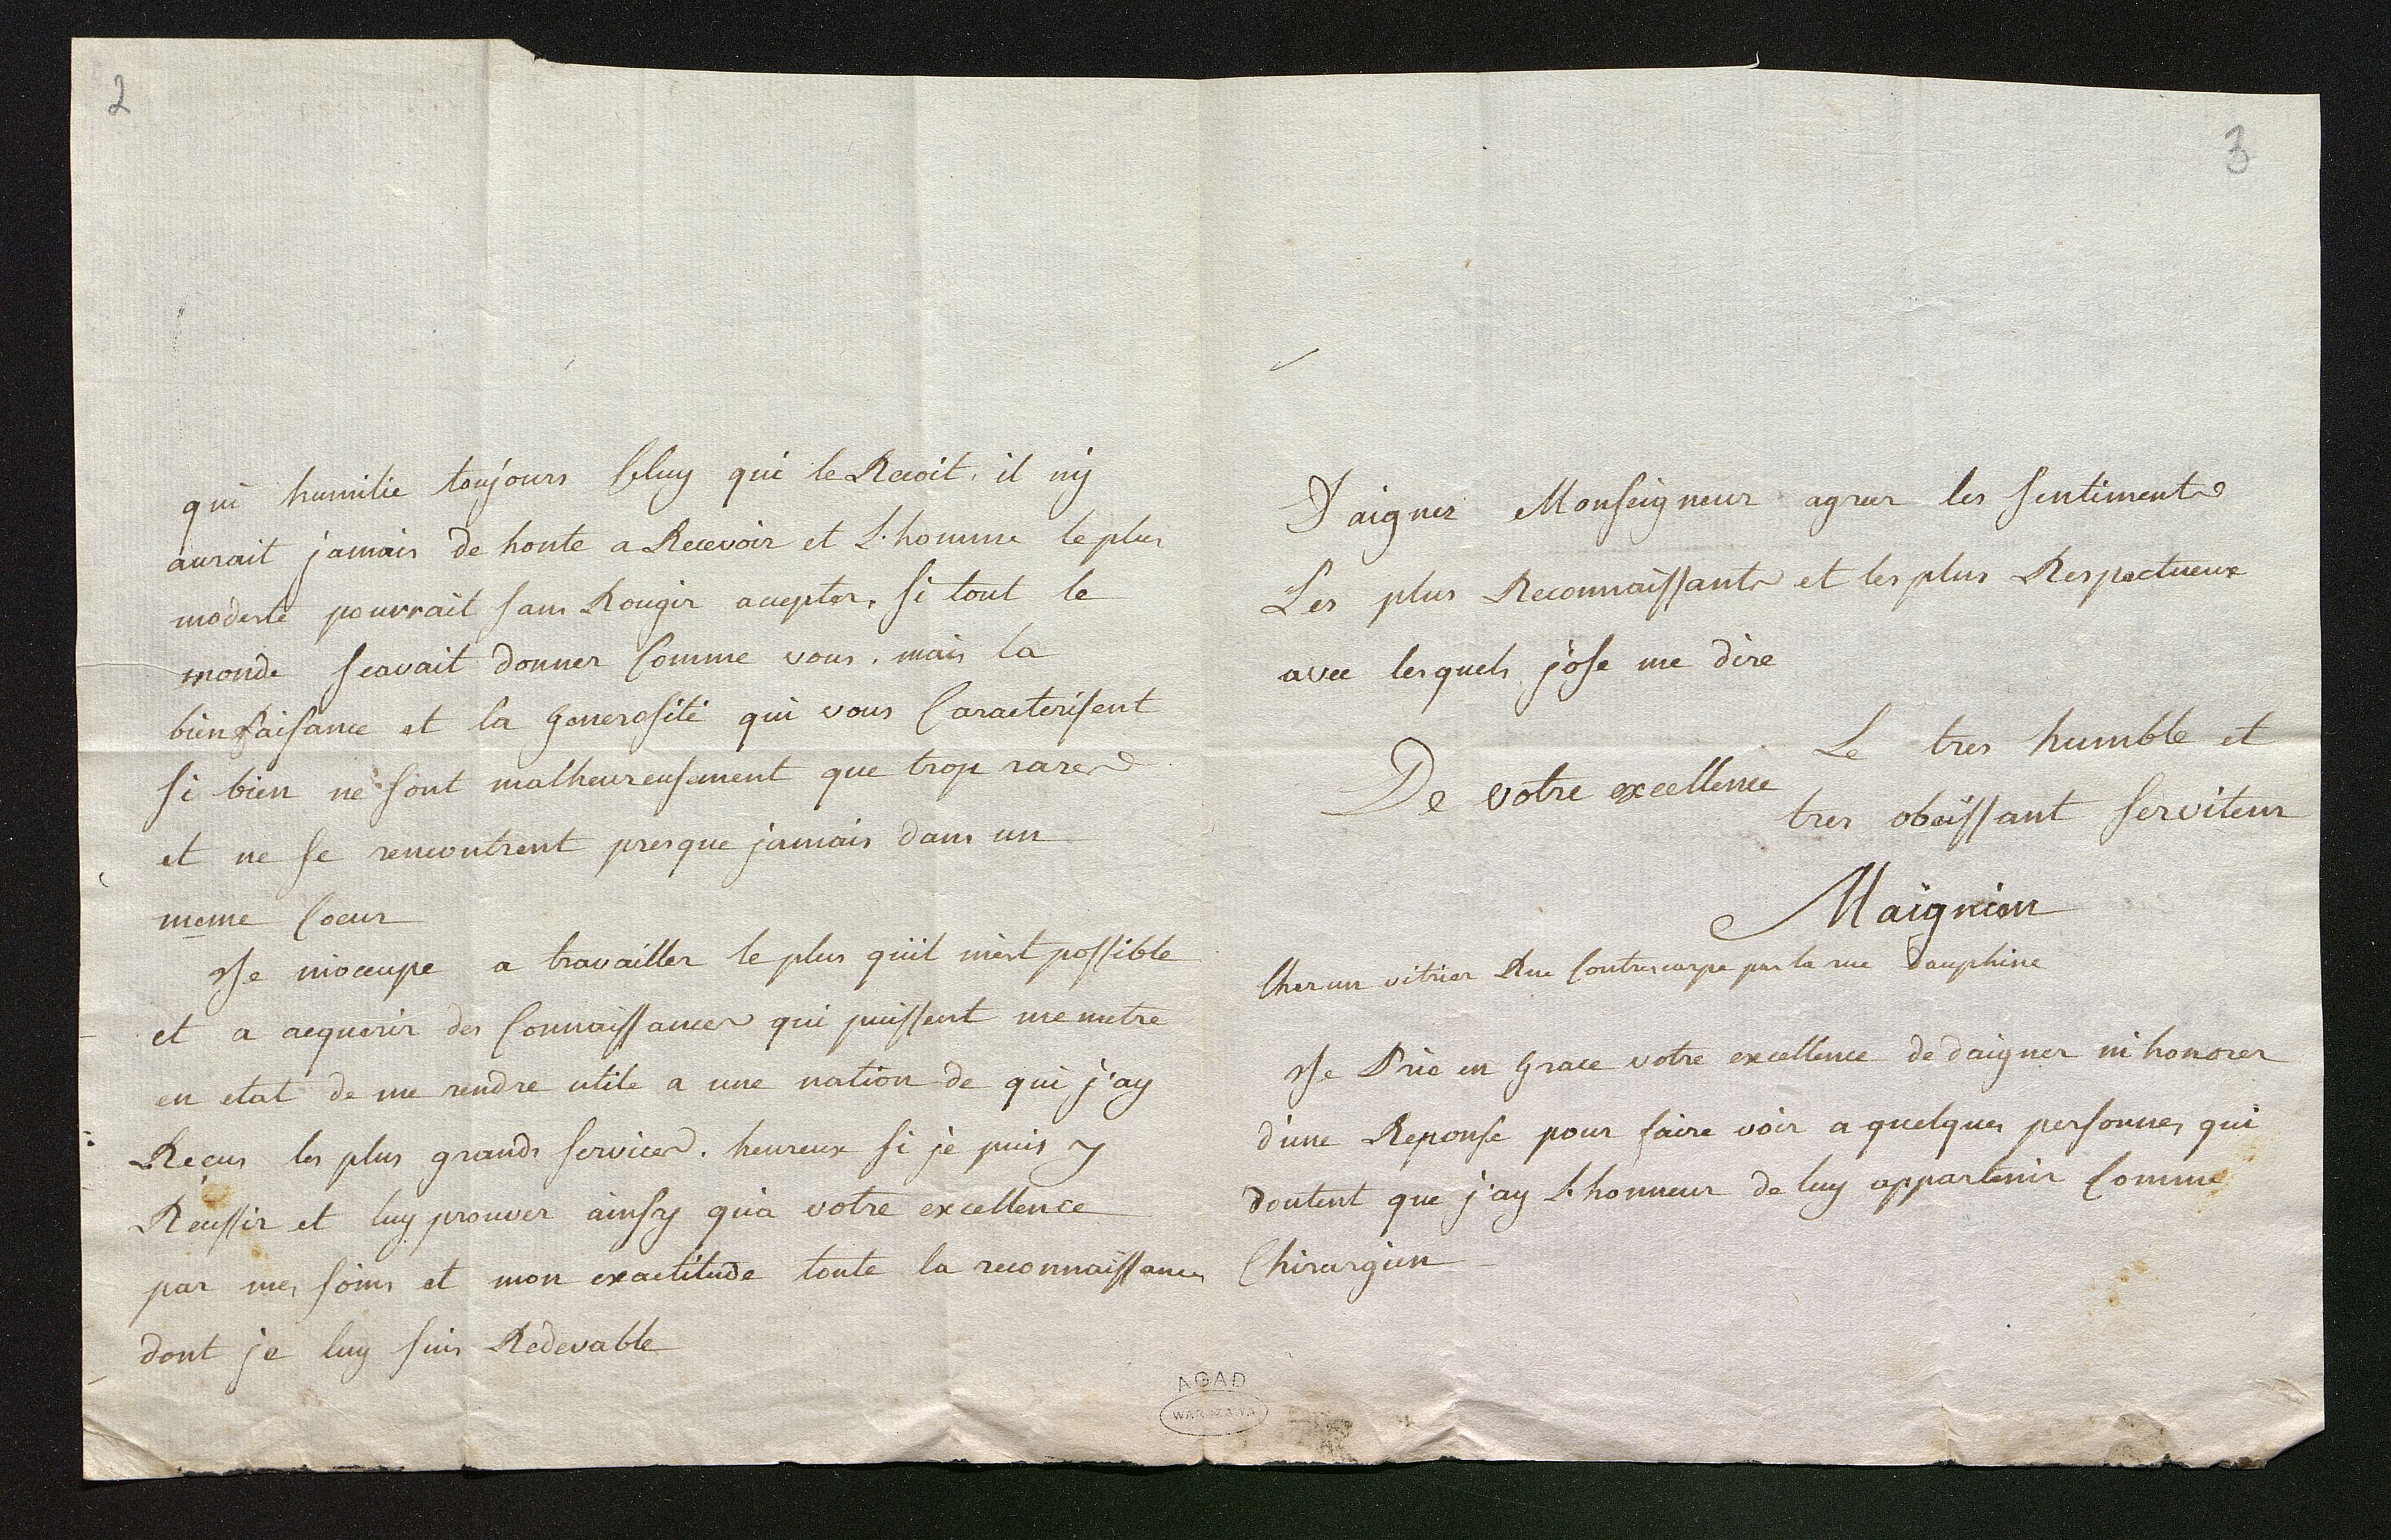 2
qui humilie toujours Celuy qui le Recoit. il n'y
aurait jamais de honte a Recevoir et L'homme le plus
modeste pourrait sans Rougir accepter, si tout le
monde scavait donner Comme vous. mais la
bienfaisance et la Generosité qui vous Caracterisent
si bien ne sont malheureusement que trop rares
et ne se rencontrent presque jamais dans un
meme Coeur
Je m'occupe a travailler le plus qu'il m'est possible
et a acquerir des Connaissances qui puissent me metre
en etat de me rendre utile a une nation de qui j'ay
Recus les plus grands services. heureux si je puis y
Reussir et luy prouver ainsy qu'a votre excellence
par mes soins et mon exactitude toute la reconnaissances
dont je luy suis Redevable
3
Daignez Monseigneur agreer les sentiments
Les plus Reconnaissants et les plus Respectueux
avec lesquels j'ose me dire
De votre excellence
Le tres humble et
tres obeissant serviteur
Maignien
Chez un vitrier Rue Contrescarpe par la rue dauphine
Je Prie en Grace votre excellence de daigner m'honorer
d'une Reponse pour faire voir a quelques personnes qui
doutent que j'ay L'honneur de luy appartenir Comme
Chirurgien
AGAD
WARSZAWA